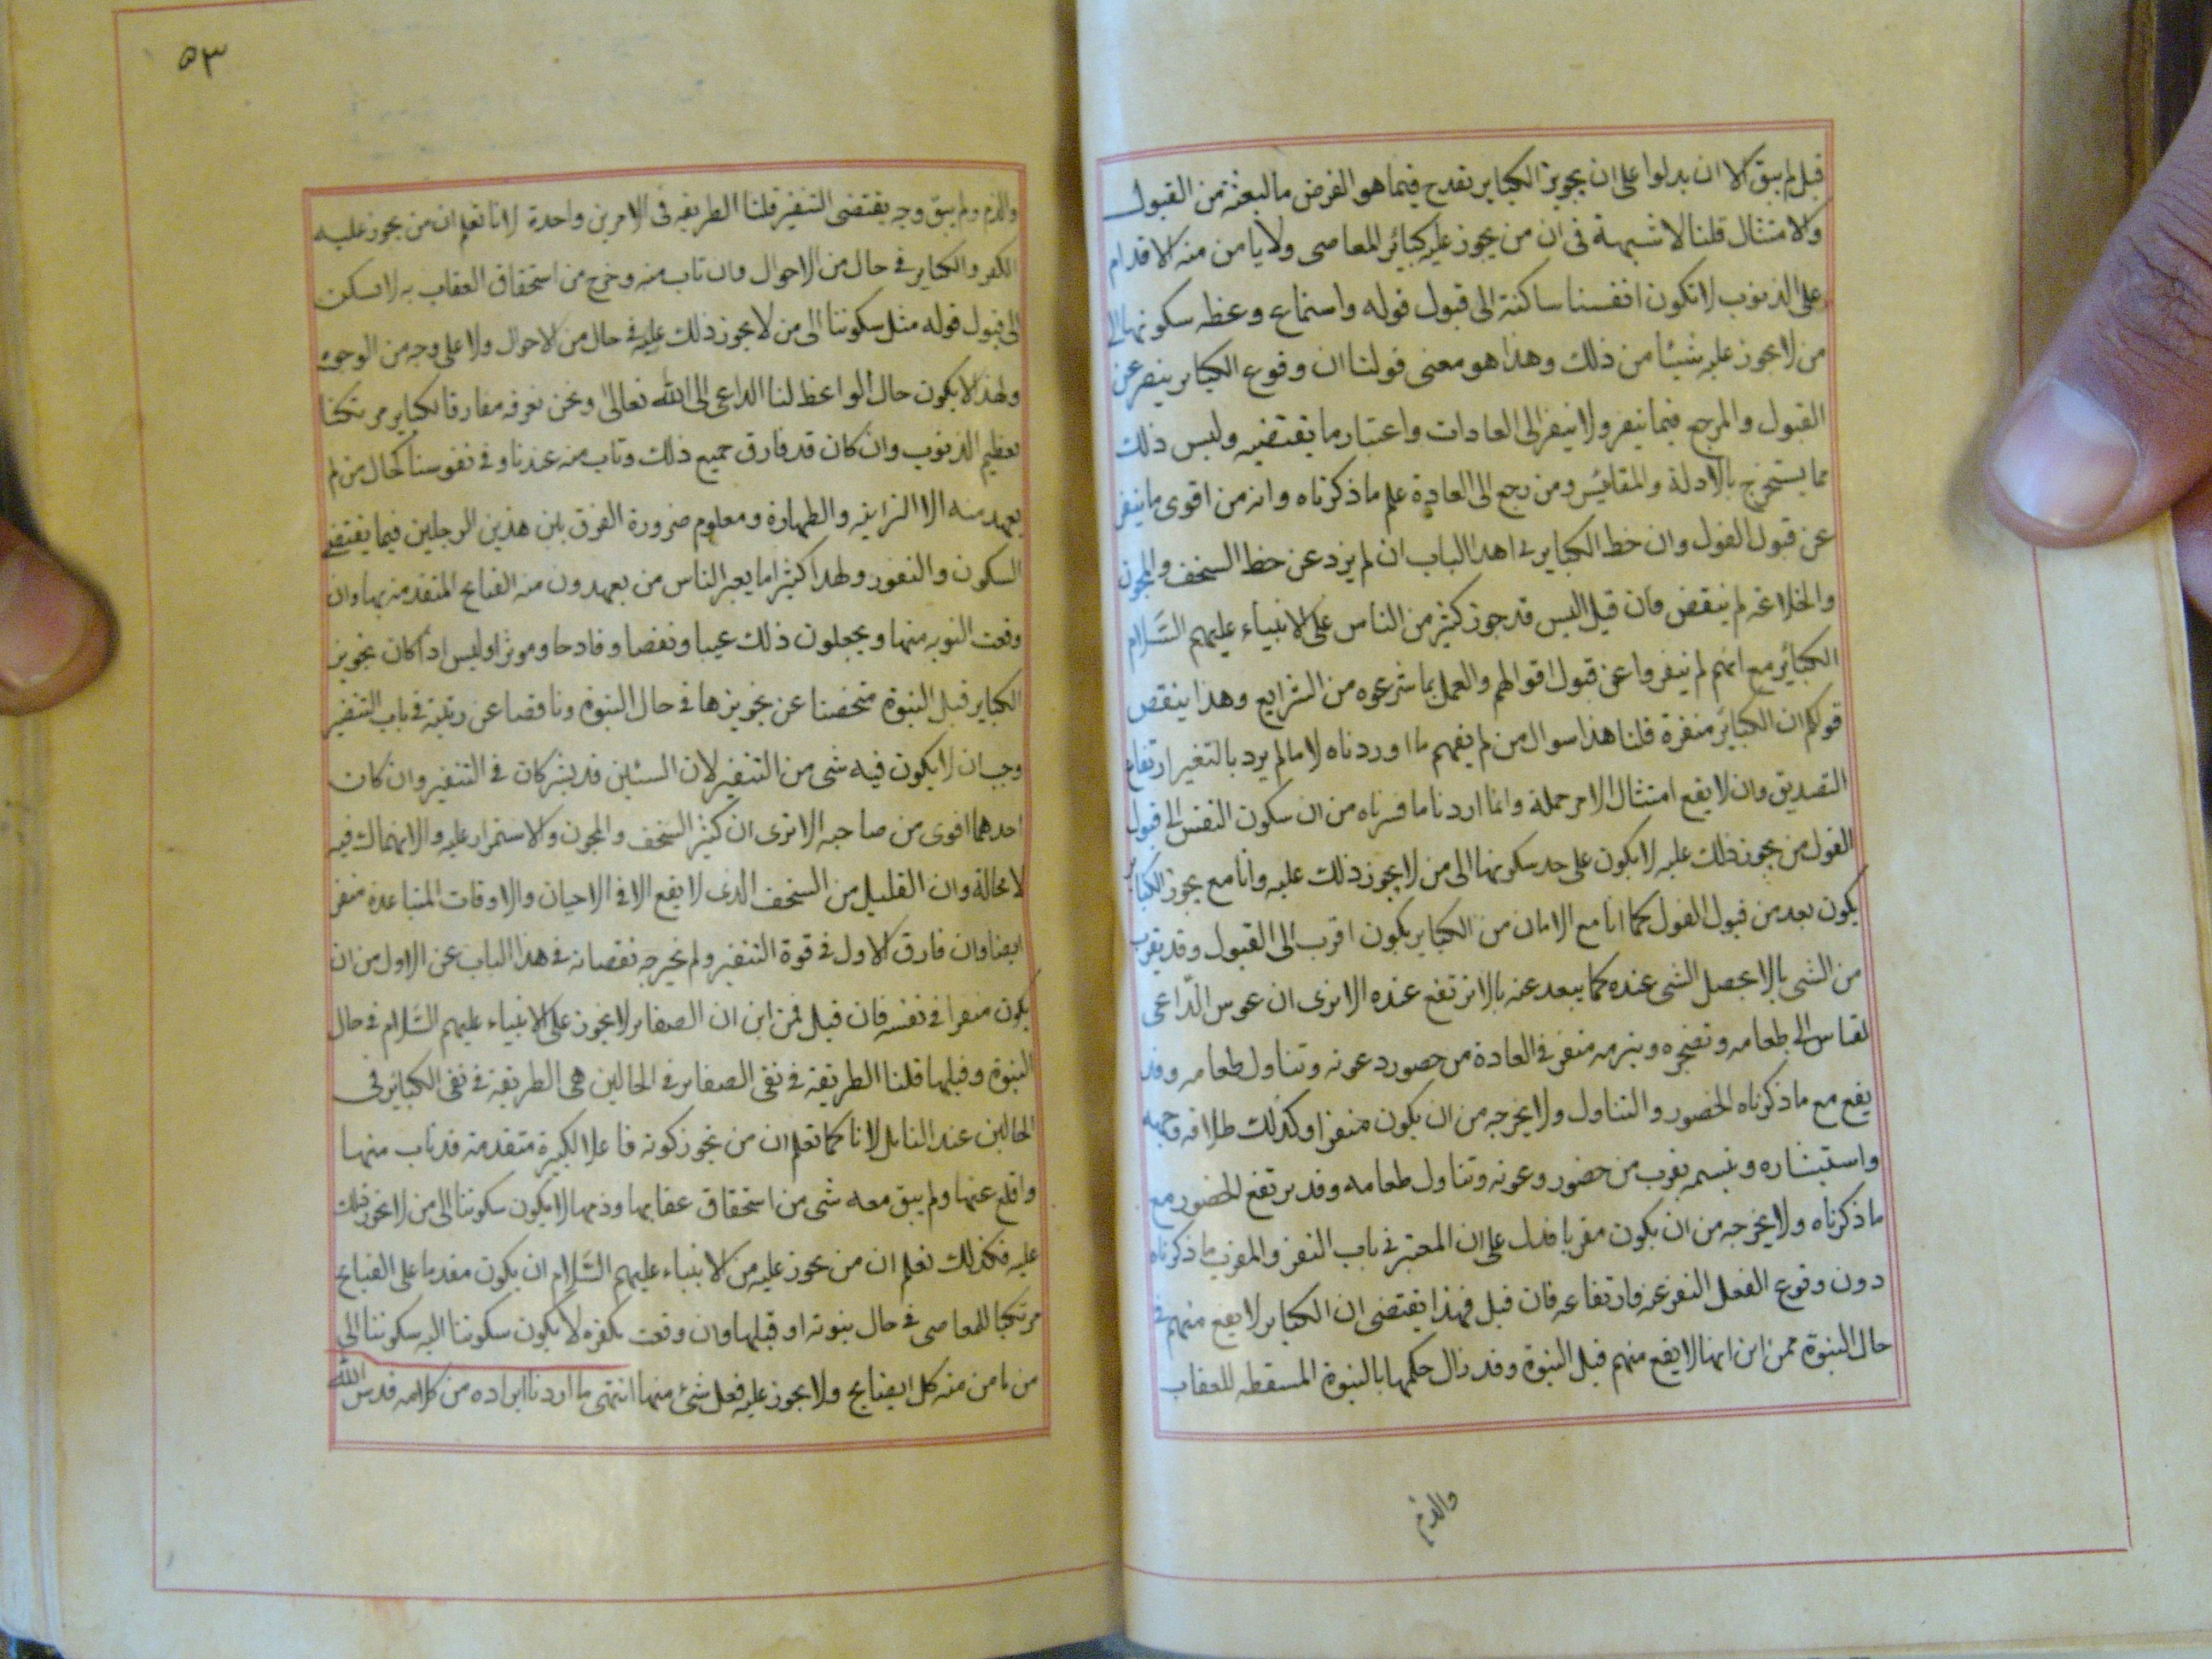 قبل لم يبق الا ان يدلوا على ان تجويز الكباير يقدح فيما هو الغرض بالبعثة من القبول
والامتثال قلنا لا شبهة فى ان من يجوز عليه كبائر المعاصى ولا يامن منه الاقدام
على الذنوب لا تكون انفسنا ساكنة الى قبول قوله واستماع وعظه سكونها الى
من لا يجوز عليه شيئا من ذلك وهذا هو معنى قولنا ان وقوع الكباير ينفر عن
القبول والمرجع فيما ينفر ولا ينفر الى العادات واعتبار ما يقتضيه وليس ذلك
مما يستخرج بالادلة والمقائيس ومن رجع الى العادة علم ما ذكرناه وانه من اقوى ما ينفر
عن قبول القول وان حظ الكباير فى اهذا الباب ان لم يزد عن حظ السخف والمجون
والخلاعة لم ينقص فان قيل اليس قد جوز كثير من الناس على الانبياء عليهم السَّلام
الكبائر مع انهم لم ينفروا عن قبول اقوالهم والعمل بما شرعوه من الشرايع وهذا ينقض
قولكم ان الكبائر منفرة قلنا هذا سوال من لم يفهم ما اوردناه لاما لم يرد بالتغير ارتفاع
التصديق وان لا يقع امتثال الامر جملة وانما اردنا ما فسرناه من ان سكون النفس الى قبول
القول من يجوز ذلك عليه لا يكون على حد سكونها الى من لا يجوز ذلك عليه وانا مع يجوز الكباير
يكون بعد من قبول القول كما انا مع الامان من الكباير يكون اقرب الى القبول وقد يقرب
من الشى بالا يحصل الشى عنده كما يبعد عنه بالا يرتفع عنده الا نرى ان عبوس الدّاعى
لقاس الى طعامه وتضجره وتبرمه منفر فى العادة من حضور دعوته وتناول طعامه وقد
يقع مع ما ذكرناه الحضور والتناول ولا يخرجه من ان يكون منفرا وكذلك طلاقه وجهه
واستبشاره وتبسمه يقرب من حضور وعوته وتناول طعامه وقد يرتفع للحضور مع
ما ذكرناه ولا يخرجه من ان يكون مقربا فدل على ان المعتبر فى باب النفر والمقرب ما ذكرناه
دون وقوع الفعل النفر عنه وارتفاعه فان قيل فهذا يقتضى ان الكباير لا يقع منهم فى
حال النبوة فمن اين انها لا يقع منهم قبل النبوة وقد زال حكمها بالنبوة المسقطه للعقاب
والذم
٥٣
والذم ولم يبق وجه يقتضى التنفير قلنا الطريقه فى الامرين واحدة لانا نعلم ان من يجوز عليه
الكفر والكباير فى حال من الاحوال وان تاب منه وخرج من استحقاق العقاب به لا نسكن
الى قبول قوله مثل سكوننا الى من لا يجوز ذلك عليه فى حال من الاحوال ولا على وجه من الوجوه
ولهذا لا يكون حال الواعظ لنا الداعى الى الله تعالى ونحن نعرفه مفارقا لكباير مرتكبا
لعظيم الذنوب وان كان قد فارق جميع ذلك وتاب منه عندنا وفى نفوسنا كحال من لم
يعهد منه الا النزاهه والطهارة ومعلوم ضرورة الفرق بين هذين الرجلين فيما يقتضى
السكون والنفور ولهذا كثيرا ما يعير الناس من يعهدون منه القبايح المتقدمة بها وان
وقعت التوبه منها ويجعلون ذلك عيبا ونقصا وقادحا وموثرا وليس اذا كان تجويز
الكباير قبل النبوة منخفضا عن تجويزها فى حال النبوة وناقصا عن رتبة فى باب التنفير
وجب ان لا يكون فيه شى من التنفير لان السئين قد يشركان فى التنفير وان كان
احدهما اقوى من صاحبه الا ترى ان كثير السخف والمجون والاستمرار عليه والانهماك فيه
لا محالة وان القليل من السخف الذى لا يقع الا فى الاحيان والاوقات المتباعدة منفر
ايضا وان فارق الاول فى قوة التنفير ولم يخرجه نقصانه فى هذا الباب عن الاول من ان
يكون منفرا فى نفسه فان قيل فمن اين ان الصغاير لا يجوز على الانبياء عليهم السَّلام فى حال
النبوة وقبلها قلنا الطريقة فى نفى الصغاير فى الحالين هى الطريقة فى نفى الكبائر فى
الحالين عند التامل لانا كما نعلم ان من نجوز كونه فاعلا لكبيرة متقدمة قد تاب منها
واقلع عنها ولم يبق معه شى من استحقاق عقابها وذمها لا يكون سكوننا الى من لا نجوز ذلك
عليه فكذلك نعلم ان من يجوز عليه من الانبياء عليهم السَّلام ان يكون مقدما على القبايح
مرتكبا للمعاصى فى حال نبوته او قبلها وان وقعت مكفره لا يكون سكوننا اليه سكوننا الى
من نامن منه كل القبايح ولا يجوز عليه فعل شئ منها انتهى ما اردنا ايراده من كلامه قدس الله